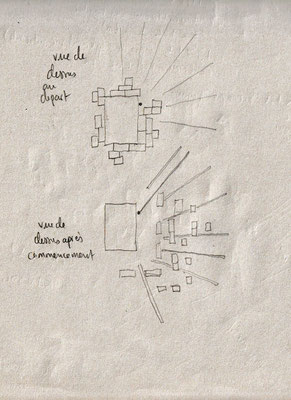 vue de
dessus
au
départ
vue de
dessus après
commencement